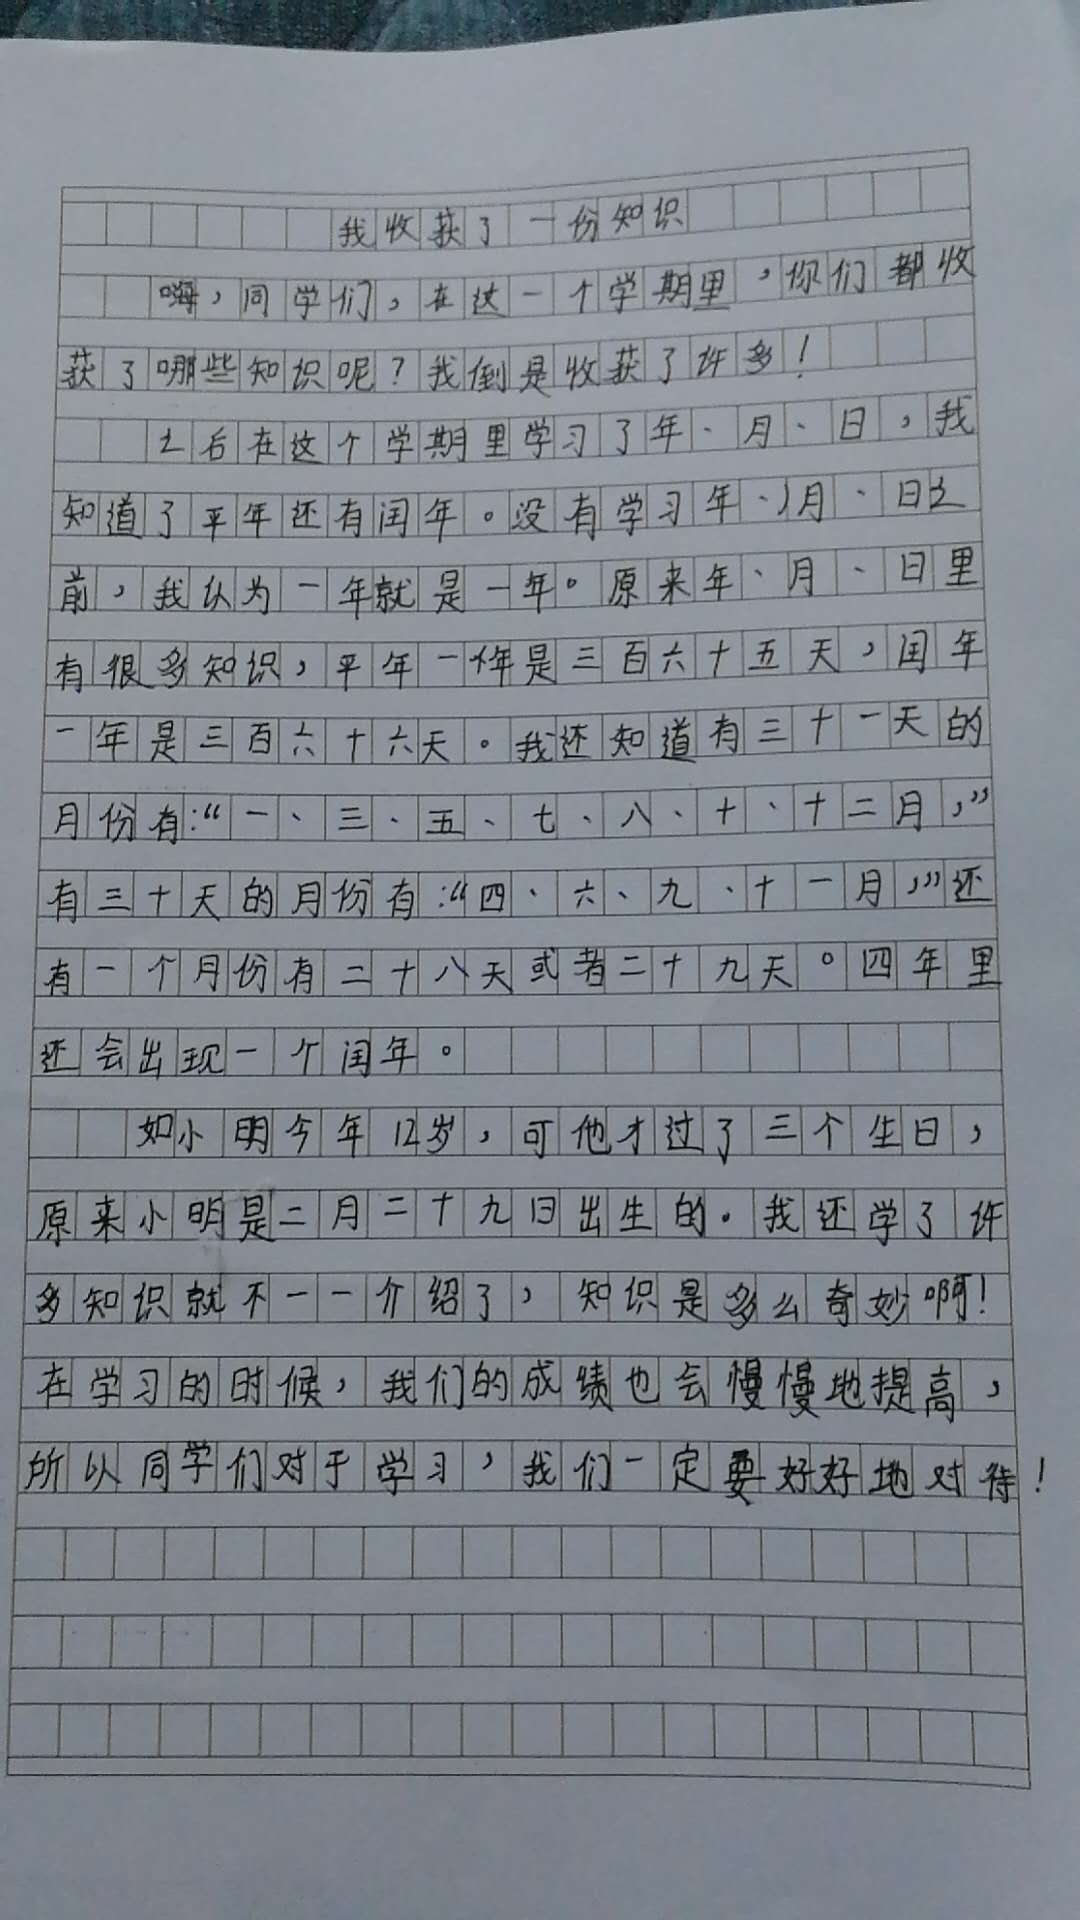 我收获了一份知识
嗨，同学们，在这一个学期里，你们都收
获了哪些知识呢？我倒是收获了许多！
之后在这个学期里学习了年、月、日，我
知道了平年还有闰年。没有学习年、月、日之
前，我认为一年就是一年。原来年、月、日里
有很多知识，平年一年是三百六十五天，闰年
一年是三百六十六天。我还知道有三十一天的
月份有：“一、三、五、七、八、十、十二月，”
有三十天的月份有：“四、六、九、十一月，”还
有一个月份有二十八天或者二十九天。四年里
还会出现一个闰年。
如小明今年12岁，可他才过了三个生日，
原来小明是二月二十九日出生的。我还学了许
多知识就不一一介绍了，知识是多么奇妙啊！
在学习的时候，我们的成绩也会慢慢地提高，
所以同学们对于学习，我们一定要好好地对待！